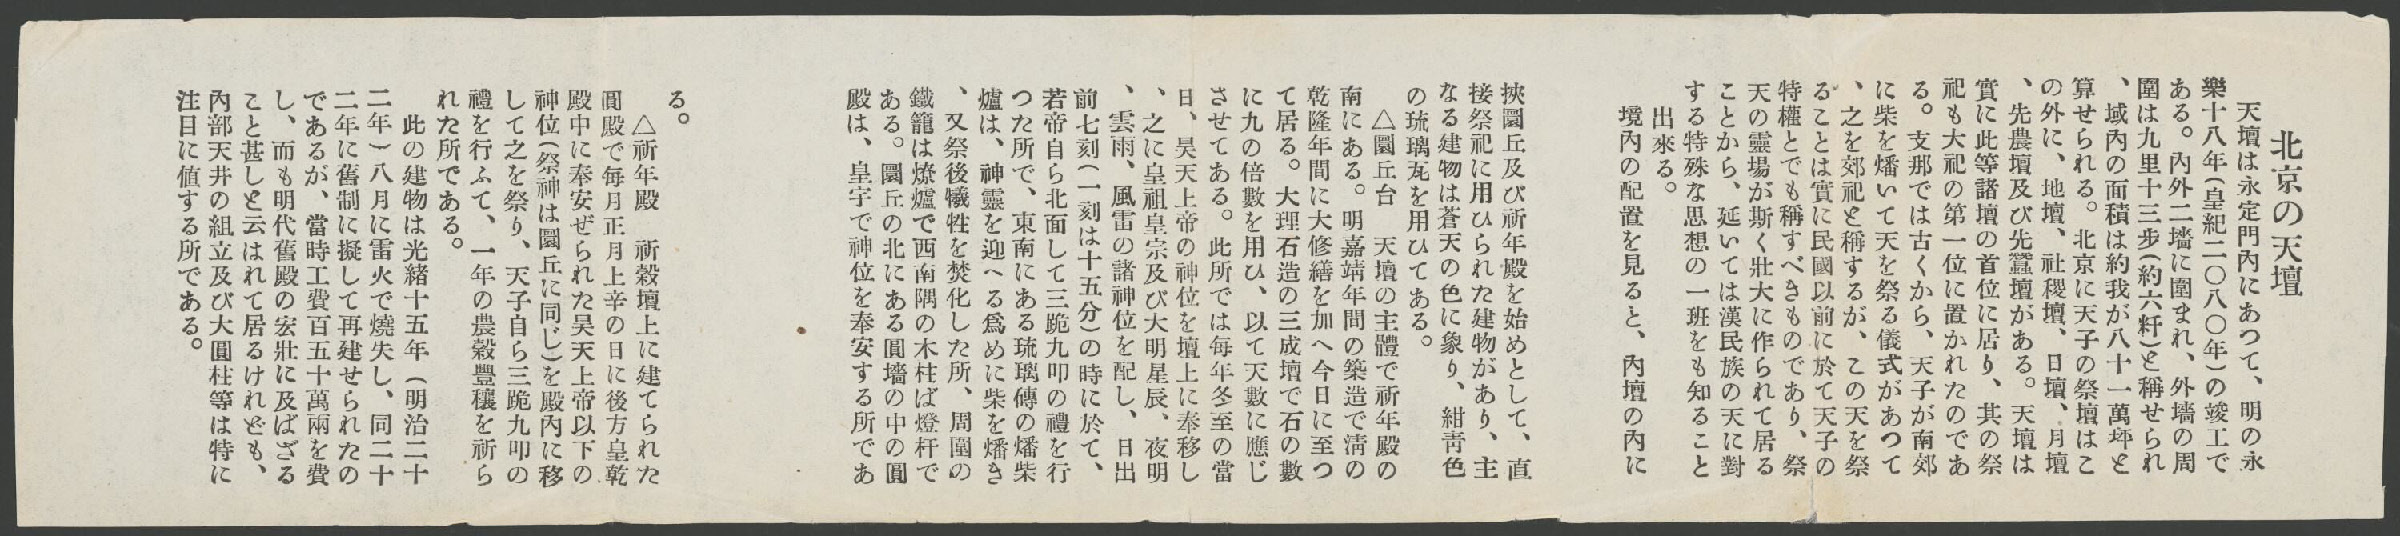 北京の天壇
天壇は永定門內にあつて、明の永
樂十八年(皇紀二〇八〇年)の竣工で
ある。內外二墻に圍まれ、外墻の周
圍は九里十三步(約六粁)と稱せられ
、域內の面積は約我が八十一萬坪と
算せられる。北京に天子の祭壇はこ
の外に、地壇、社稷壇、日壇、月壇
、先農壇及び先蠶壇がある。天壇は
實に此等諸壇の首位に居り、其の祭
祀も大祀の第一位に置かれたのであ
る。支那では古くから、天子が南郊
に柴を燔いて天を祭る儀式があつて
、之を郊祀と稱するが、この天を祭
ることは實に民國以前に於て天子の
特權とでも稱すべきものであり、祭
天の靈場が斯く壯大に作られて居る
ことから、延いては漢民族の天に對
する特殊な思想の一班をも知ること
出來る。
境內の配置を見ると、內壇の內に
挾圜丘及び祈年殿を始めとして、直
接祭祀に用ひられた建物があり、主
なる建物は蒼天の色に象り、紺靑色
の琉璃瓦を用ひてある。
△圜丘台　天壇の主體で祈年殿の
南にある。明嘉靖年間の築造で淸の
乾隆年間に大修繕を加へ今日に至つ
て居る。大理石造の三成壇で石の數
に九の倍數を用ひ、以て天數に應じ
させてある。此所では每年冬至の當
日、昊天上帝の神位を壇上に奉移し
、之に皇祖皇宗及び大明星辰、夜明
、雲雨、風雷の諸神位を配し、日出
前七刻(一刻は十五分)の時に於て、
若帝自ら北面して三跪九叩の禮を行
つた所で、東南にある琉璃磚の燔柴
爐は、神靈を迎へる爲めに柴を燔き
、又祭後犧牲を焚化した所、周圍の
鐵籠は燎爐で西南隅の木柱ば燈杆で
ある。圜丘の北にある圓墻の中の圓
殿は、皇宇で神位を奉安する所であ
る。
△祈年殿　祈穀壇上に建てられた
圓殿で每月正月上辛の日に後方皇乾
殿中に奉安ぜられた昊天上帝以下の
神位(祭神は圜丘に同じ)を殿內に移
して之を祭り、天子自ら三跪九叩の
禮を行ふて、一年の農穀豐穰を祈ら
れた所である。
此の建物は光緒十五年(明治二十
二年)八月に雷火で燒失し、同二十
二年に舊制に擬して再建せられたの
であるが、當時工費百五十萬兩を費
し、而も明代舊殿の宏壯に及ばざる
こと甚しと云はれて居るけれども、
內部天井の組立及び大圓柱等は特に
注目に値する所である。